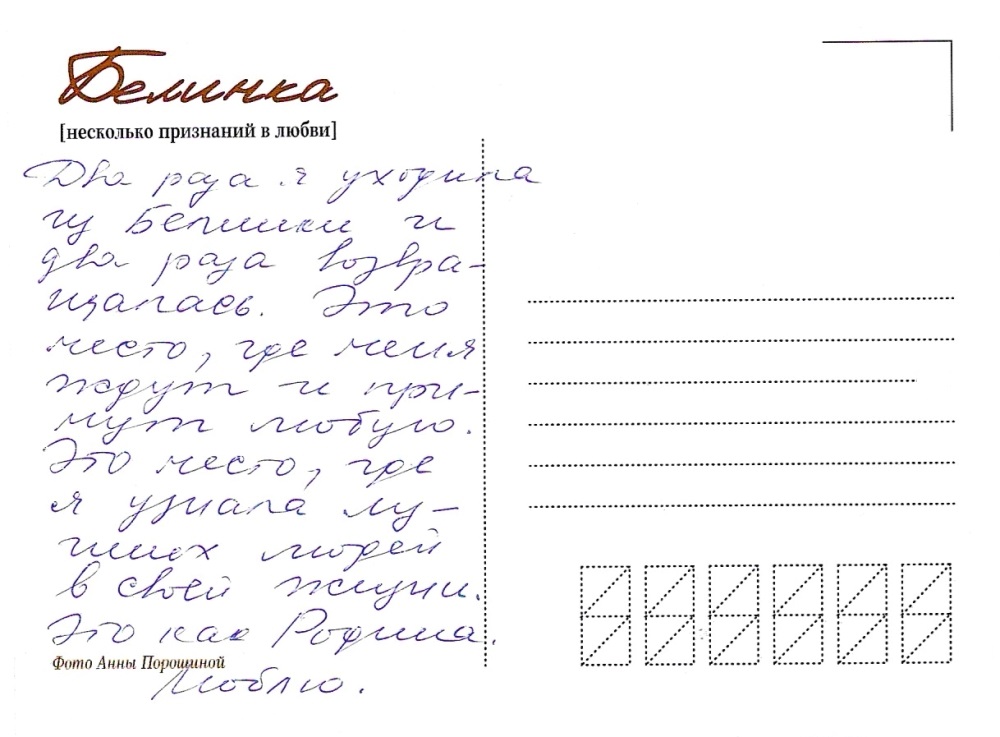 Белинка
[несколько признаний в любви]
Два раза я уходила
из Белинки и
два раза возвра-
щалась. Это
место, где меня
ждут и при-
мут любую.
Это место, где
я узнала лу-
чших людей
в своей жизни.
Это как Родина.
Фото Анны Порошиной
Люблю.